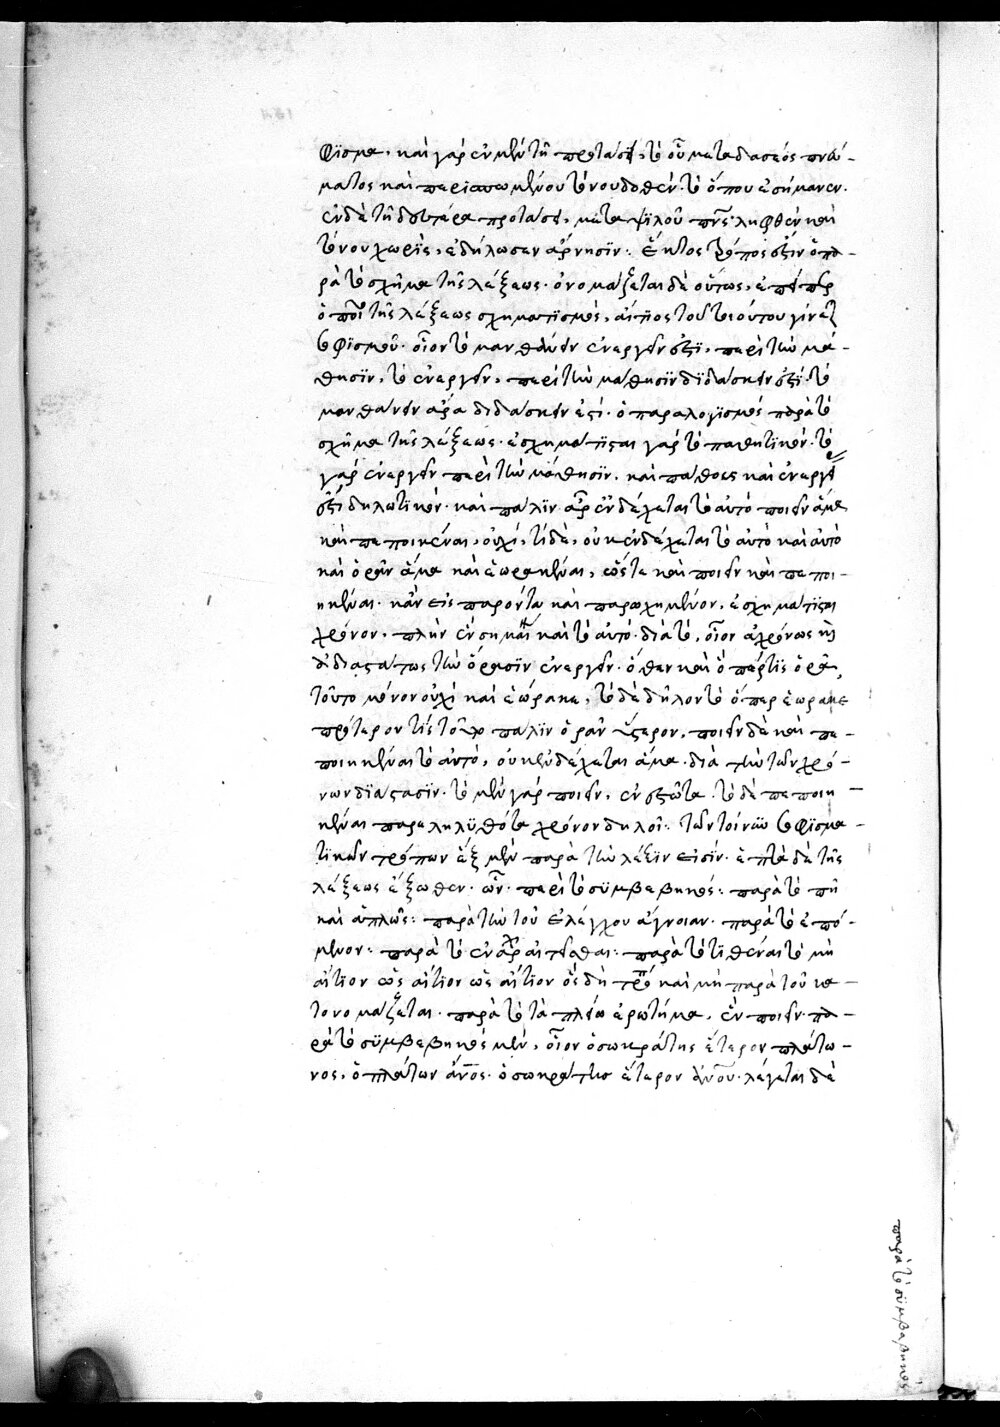 φισμα. καὶ γὰρ ἐν μὲν τῇ προτάσει, τὸ οὗ μετὰ δασέος πνεύ-
ματος καὶ περισπωμένου τόνου δοθὲν. τὸ ὅπου ἐσήμανεν.
ἐν δὲ τῇ δευτέρα προτάσει, μετὰ ψιλοῦ πνς ληφθὲν καὶ
τόνου χωρὶς, ἐδήλωσεν ἄρνησιν: ἕκτος τρόπος ἐστὶν ὁ πα-
ρὰ τὸ σχῆμα τῆς λέξεως. ὀνομάζεται δὲ οὕτως, ἐπειπερ
ὁ ποιὸς τῆς λέξεως σχηματισμὸς, αἴτιος τοῦ τοιούτου γίνεται
σοφισμοῦ. οἷον τὸ μανθάνειν ἐνεργεῖν ἐστὶ, περὶ τὴν μά-
θησιν, τὸ ἐνεργεῖν, περὶ τὴν μάθησιν διδάσκειν ἐστί. τὸ
μανθάνειν ἄρα διδάσκειν ἐστί. ὁ παραλογισμὸς παρὰ τὸ
σχῆμα τῆς λέξεως. ἐσχημάτισται γὰρ τὸ παθητικὸν. τὸ
γὰρ ἐνεργεῖν περὶ τὴν μάθησιν, καὶ πάθους καὶ ἐνεργεί
ἐστὶ δηλωτικόν. καὶ πάλιν ἆρ' ἐνδέχεται τὸ αὐτὸ ποιεῖν ἅμα
καὶ πεποιηκέναι, οὐχί, τί δὲ, οὐκ ἐνδέχεται τὸ αὐτὸ καὶ αὐτὸ
καὶ ὁρᾶν ἅμα καὶ ἑωρακέναι, ὥστε καὶ ποιεῖν καὶ πεποι-
ηκέναι. κἂν εἰς παρόντα καὶ παρῳχημένον, ἐσχημάτισται
χρόνον. πλὴν ἓν σημαίνει καὶ τὸ αὐτό. διὰ τὸ, οἷον ἀχρόνως καὶ
ἀδιαστάτως τὴν ὅρασιν ἐνεργεῖν. ὅθεν καὶ ὅπερ τὶς ὁρᾷ,
τοῦτο μόνον οὐχὶ καὶ ἑώρακε, τὸ δὲ δῆλον τὸ ὅπερ ἑώρακε
πρότερον τὶς τοῦτο πάλιν ὁρᾶν ὕστερον. ποιεῖν δὲ καὶ πε-
ποιηκέναι τὸ αὐτὸ, οὐκ ἐνδέχεται ἅμα. διὰ τὴν τῶν χρό-
νων διάστασιν. τὸ μὲν γὰρ ποιεῖν, ἐνεστῶτα. τὸ δὲ πεποιη-
κέναι παρεληλυθότα χρόνον δηλοῖ: τῶν τοίνυν σοφισμα-
τικῶν τρόπων ἓξ μὲν παρὰ τὴν λέξιν εἰσίν. ἑπτὰ δὲ τῆς
λέξεως ἔξωθεν. ὧν. περὶ τὸ συμβεβηκός: παρὰ τὸ πῆ
καὶ ἁπλῶς: παρὰ τὴν τοῦ ἐλέγχου ἄγνοιαν. παρὰ τὸ ἑπό-
μενον: παρὰ τὸ ἐν ἀρχ αἰτεῖσθαι: παρὰ τὸ τιθέναι τὸ μὴ
αἴτιον ὡς αἴτιον ὡς αἴτιον ὃς δὴ τρό καὶ μὴ παρὰ τοῦτο
τονομάζεται. παρὰ τὸ τὰ πλείω ἐρωτήμα, ἓν ποιεῖν. πα-
ρὰ τὸ συμβεβηκὸς μὲν, οἷον ὁ σωκράτης ἕτερον πλάτω-
νος, ὁ πλάτων ἄνος. ὁ σωκράτης ἕτερον ἀνου. λέγεται δὲ
παρὰ τὸ συμβεβηκὸς